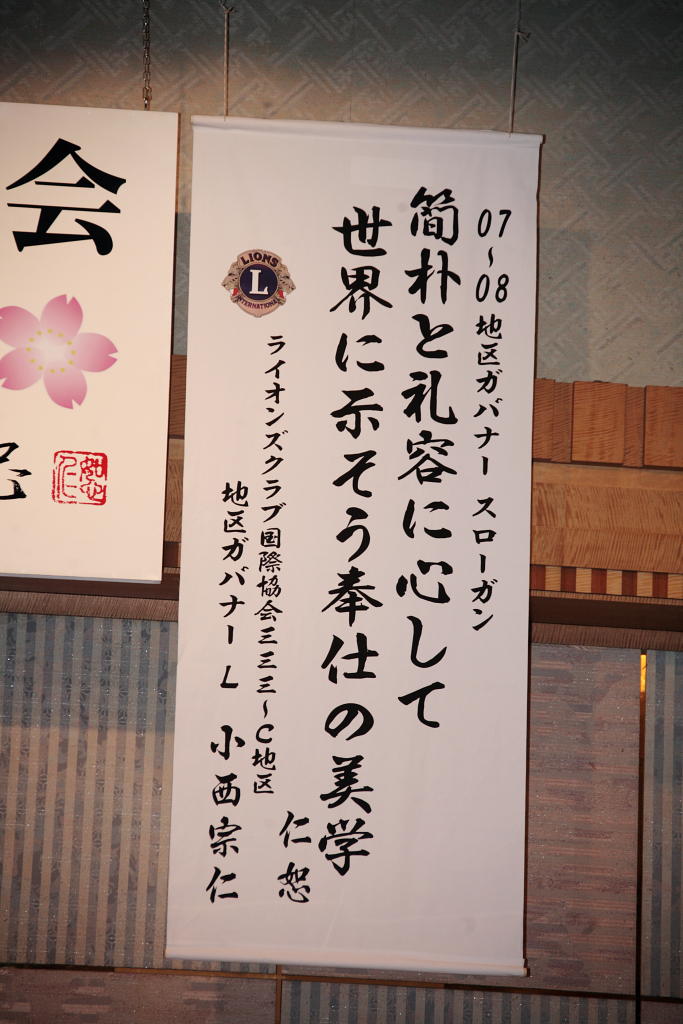 07～08 地区ガバナー スローガン
簡朴と礼容に心して
世界に示そう奉仕の美学
仁恕
LIONS
L
INTERNATIONAL
ライオンズクラブ国際協会三三三～C地区
地区ガバナー L 小西宗仁
会